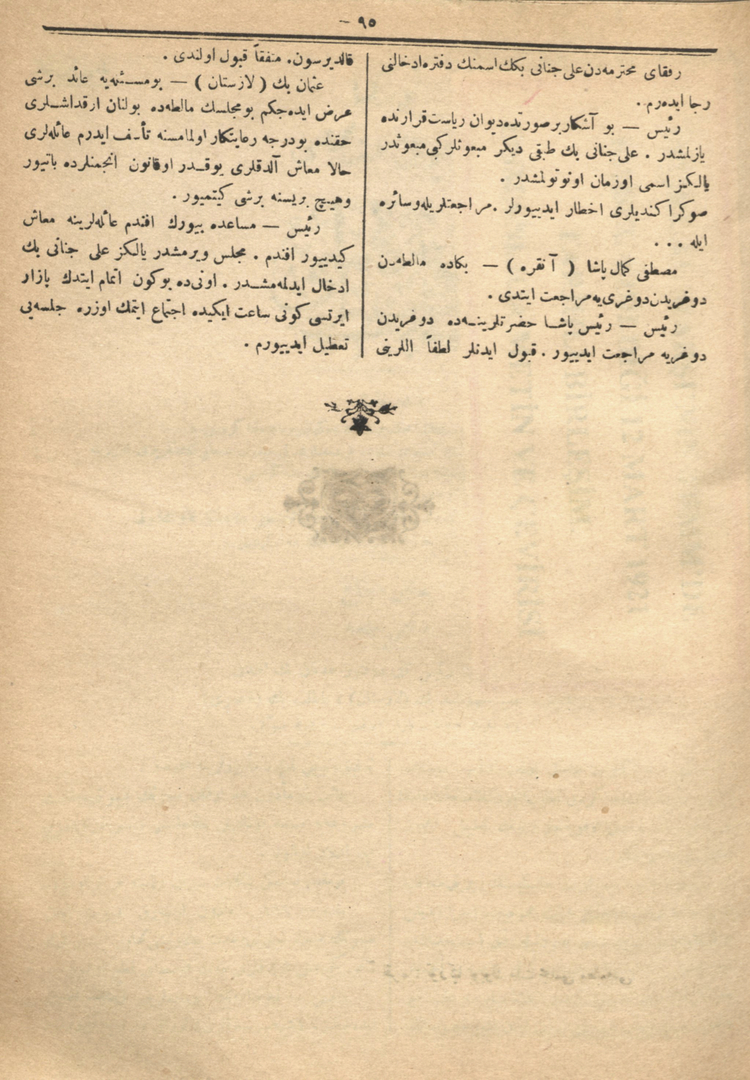 — ٩٥ —
رفقای محترمه‌دن علی جنانی بكك اسمنك دفتره ادخالنی
رجا ایده‌رم.
رئیس — بو آشكار بر صورتده دیوان ریاست قرارنده
یازلمشدر . علی جنانی بك طبقی دیگر مبعوثلر كبی مبعوثدر
یالكز اسمی اوزمان اونوتولمشدر .
صوكرا كندیلری اخطار ایدییورلر . مراجعتلریله وسائره
ایله ...
مصطفی كمال پاشا ( آنقره ) — بكاده مالطه‌دن
دوغریدن دوغری‌یه مراجعت ایتدی .
رئیس — رئیس پاشا حضرتلرینه‌ده دوغریدن
دوغریه مراجعت ایدییور . قبول ایدنلر لطفاً اللرینی
قالدیرسون. متفقاً قبول اولندی .
عثمان بك ( لازستان ) — بومسئله‌یه عائد برشی
عرض ایده‌جكم بومجلسك مالطه‌ده بولنان ارقداشلری
حقنده بودرجه رعایتكار اولمامسنه تأسف ایدرم عائله‌لری
حالا معاش آلدقلری یوقدر اوقانون انجمنلرده یاتیور
وهیچ بریسنه برشی كیتمیور .
رئیس — مساعده بیورك افندم عائله‌لرینه معاش
كیدییور افندم . مجلس ویرمشدر یالكز علی جنانی بك
ادخال ایدلمه‌مشدر . اونی‌ده بوكون اتمام ایتدك بازار
ایرتسی كونی ساعت ایكیده اجتماع ایتمك اوزره جلسه‌یی
تعطیل ایدییورم .